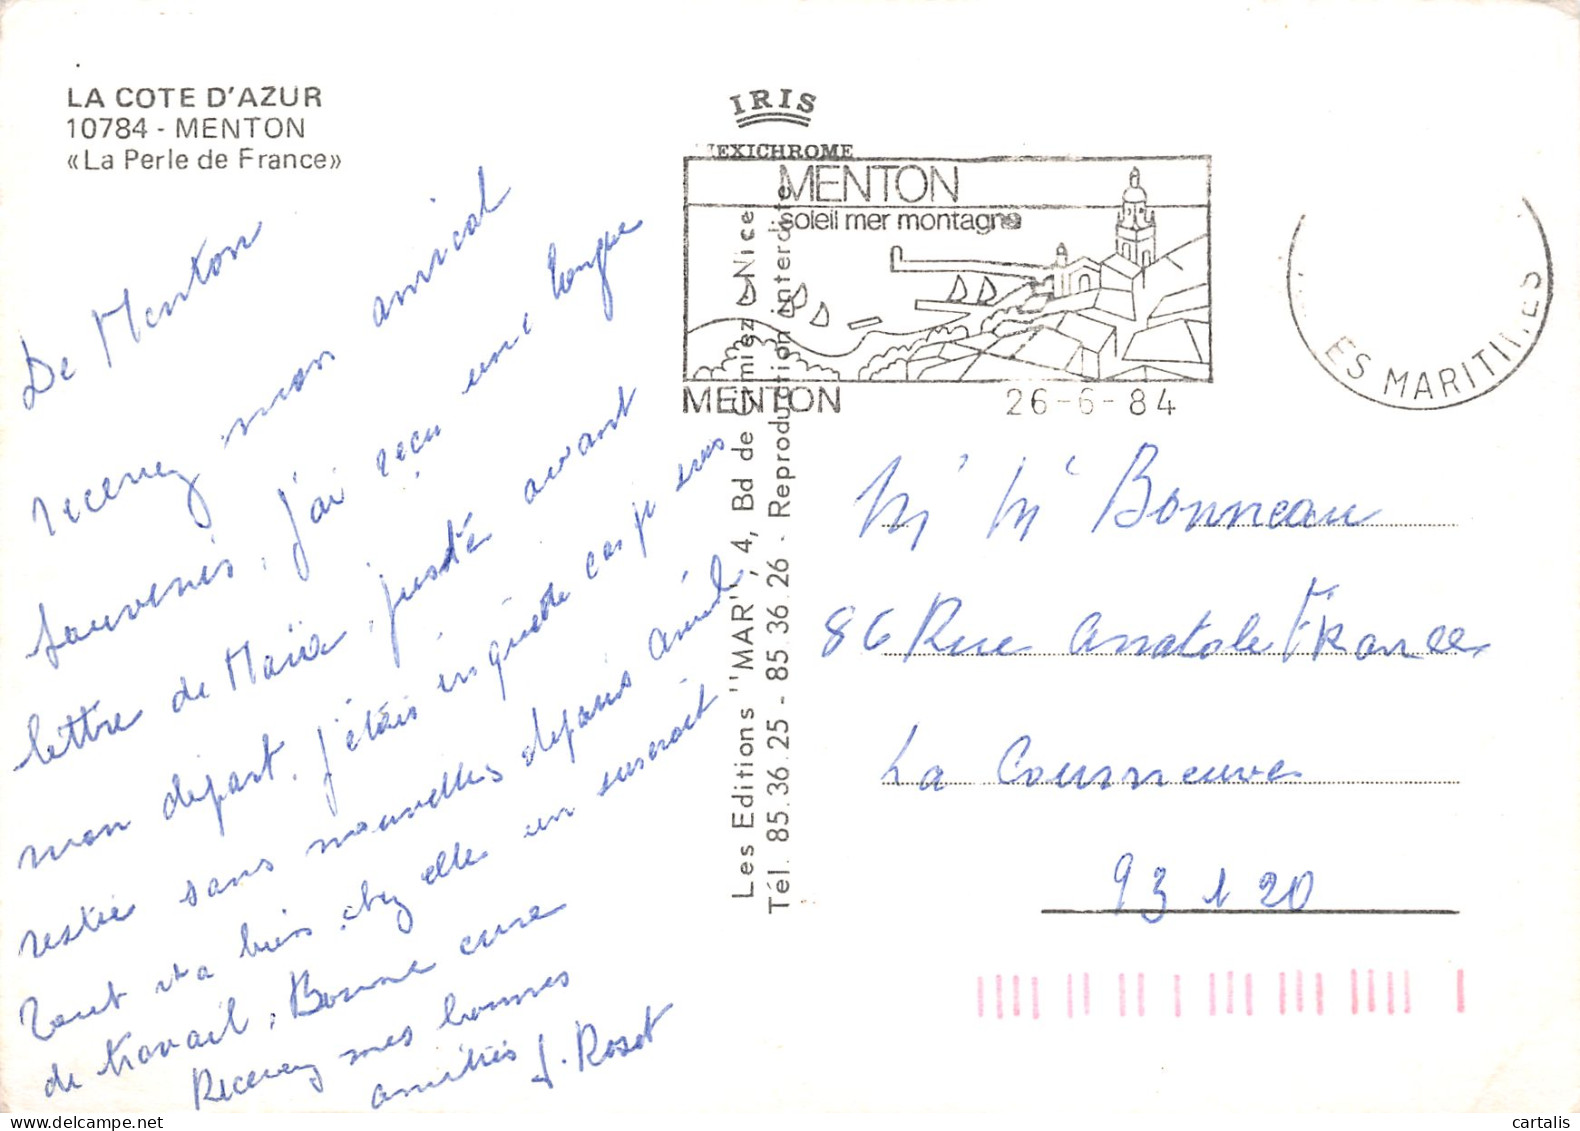 LA COTE D'AZUR
10784 - MENTON
«La Perle de France»
De Menton
recevez mon amical
souvenir, j'ai reçu une longue
lettre de Maria, juste avant
mon départ. j'étais inquiète car je suis
restée sans nouvelles depuis avril
Tout va bien chez elle un surcroit
de travail, Bonne cure
Recevez mes bonnes
amitiés J. Roset
IRIS
MEXICHROME
MENTON
soleil mer montagne
MENTON
26-6-84
ES MARITIMES
Les Editions "MAR", 4, Bd de Cimiez - Nice
Tél. 85.36.25 - 85.36.26 - Reproduction interdite
M M Bonneau
86 Rue Anatole France
La Courneuve
93120
cartalis